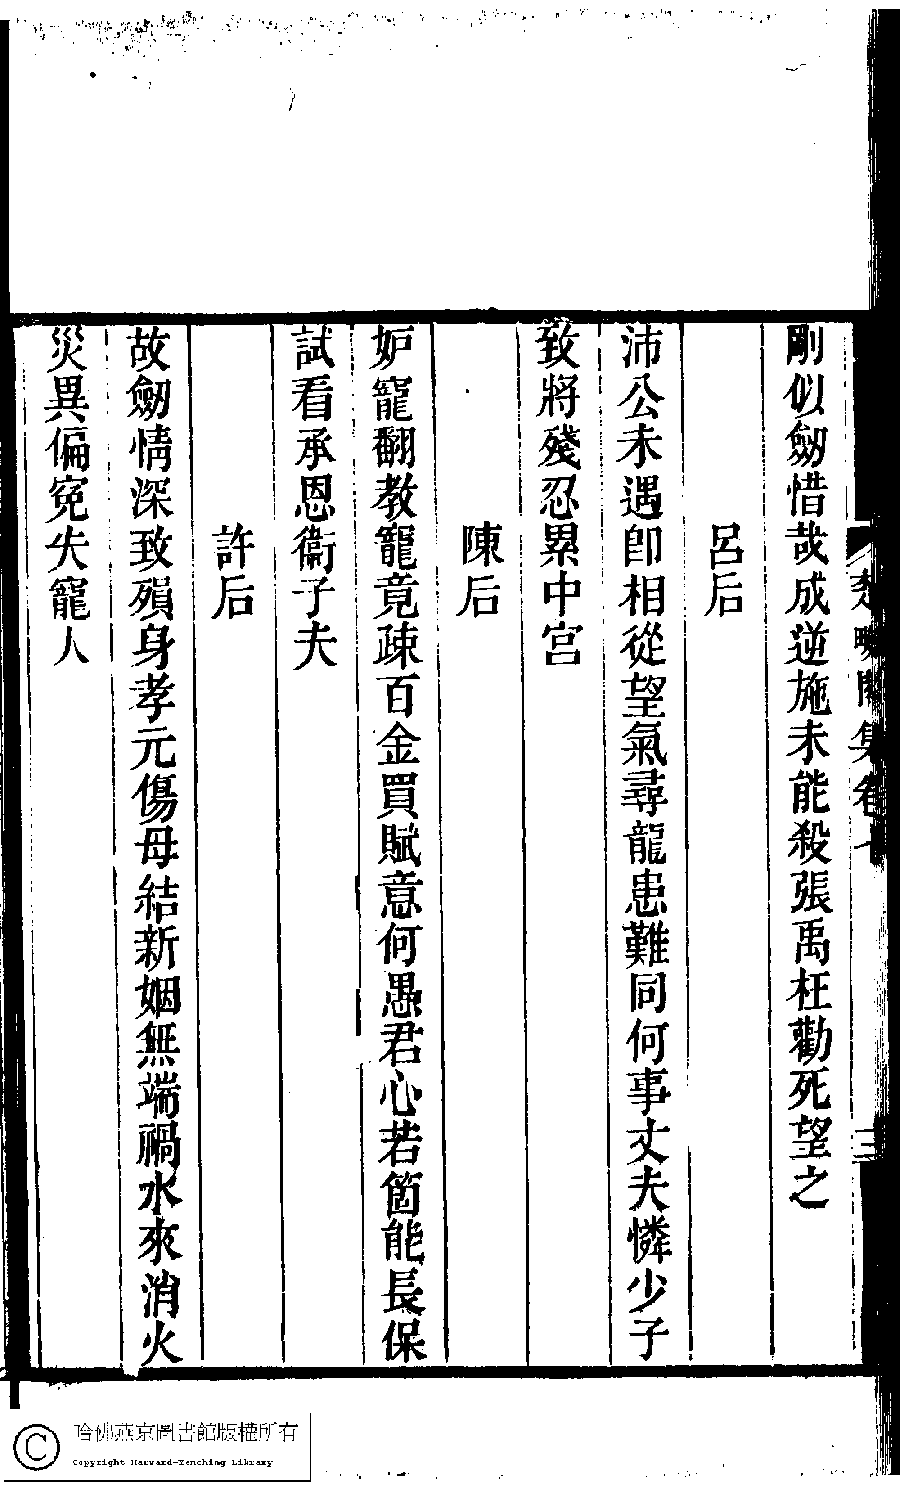 剛似劒惜哉成逆施未能殺張禹枉勸死望之
呂后
沛公未遇卽相從望氣尋龍患難同何事丈夫憐少子
致將殘忍累中宮
陳后
妒寵翻教寵竟疎百金買賦意何愚君心若箇能長保
試看承恩衞子夫
許后
故劒情深致殞身孝元傷母結新姻無端禍水來消火
災異偏寃失寵人
集卷
三
哈佛燕京圖書館版權所有
Copyright Harvard-Yenching Library